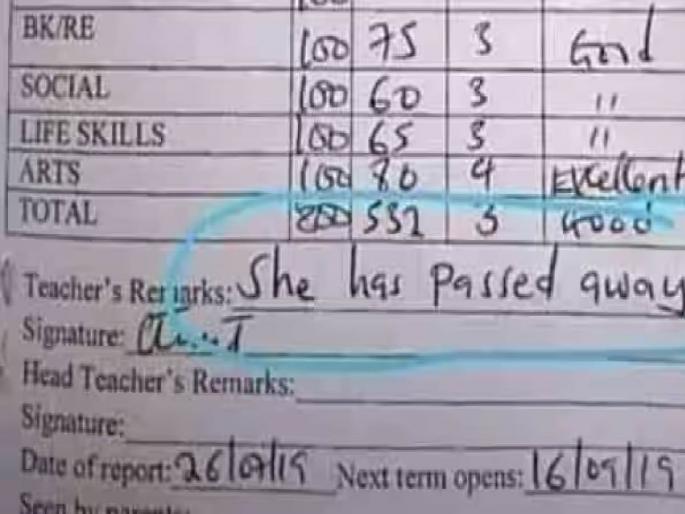 BK/RE 100 75 3 Good
SOCIAL 100 60 3 "
LIFE SKILLS 100 65 3 "
ARTS 100 80 4 Excellent
TOTAL 800 552 3 Good
Teacher's Remarks: She has passed away
Signature:
Head Teacher's Remarks:
Signature:
Date of report: 26/07/19 Next term opens: 16/09/19
Seen by parents: